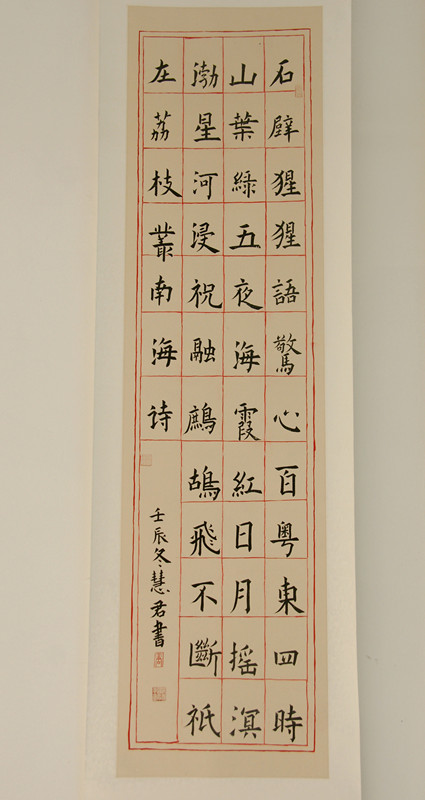 石壁猩猩語驚心百粤東四時
山葉緑五夜海霞紅日月摇溟
渤星河浸祝融鷓鴣飛不斷祇
在荔枝叢南海诗
壬辰冬慧君書